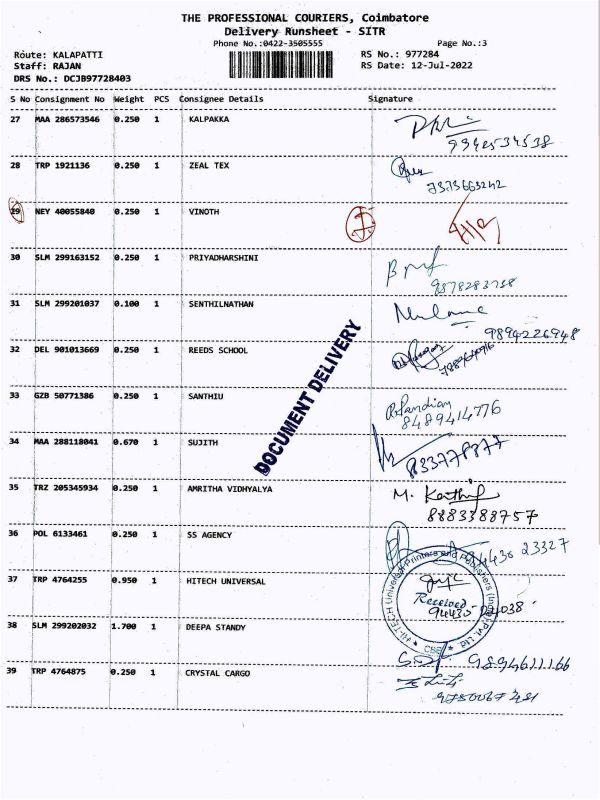 THE PROFESSIONAL COURIERS, Coimbatore
Delivery Runsheet - SITR
Phone No.:0422-3505555 Page No.:3
Route: KALAPATTI RS No.: 977284
Staff: RAJAN RS Date: 12-Jul-2022
DRS No.: DCJB97728403
S No Consignment No Weight PCS Consignee Details Signature
27 MAA 286573546 0.250 1 KALPAKKA
9942534538
28 TRP 1921136 0.250 1 ZEAL TEX
7373663242
29 NEY 40055840 0.250 1 VINOTH
30 SLM 299163152 0.250 1 PRIYADHARSHINI
31 SLM 299201037 0.100 1 SENTHILNATHAN
9894226948
32 DEL 901013669 0.250 1 REEDS SCHOOL
33 GZB 50771386 0.250 1 SANTHIU
R.Pandian
8489414776
34 MAA 288118041 0.670 1 SUJITH
35 TRZ 205345934 0.250 1 AMRITHA VIDHYALYA
M. Karthik
8883388757
36 POL 6133461 0.250 1 SS AGENCY
94430 23327
37 TRP 4764255 0.950 1 HITECH UNIVERSAL
Received
38 SLM 299202032 1.700 1 DEEPA STANDY
9894611166
39 TRP 4764875 0.250 1 CRYSTAL CARGO
DOCUMENT DELIVERY
HI-TECH Universal Printers and Publishers (India) Pvt. Ltd
CBE